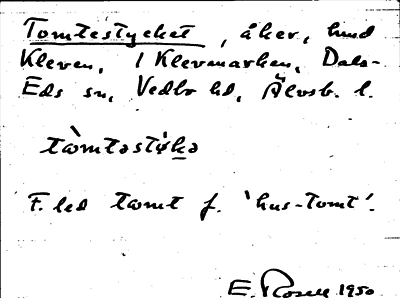 Tomtestycket, åker, hmd
Kleven, 1 Klevmarken, Dals-
Eds sn, Vedbo hd, Älvsb. l.
tòmtəstykə
F. led tomt f. 'hus-tomt'.
E. Rosell 1950